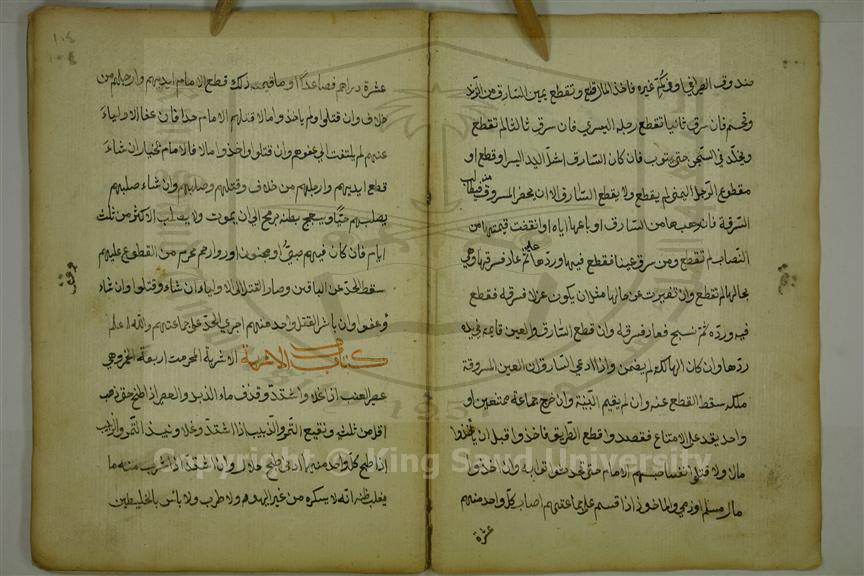 صندوق الصيرفي او في كم غيره فاخذ المال قطع وتقطع يمين السارق من الزند
وتحسم فان سرق ثانيا تقطع رجله اليسرى فان سرق ثالثا لم تقطع
ويخلد في السجن حتى يتوب فان كان السارق اشل اليد اليسرا او قطع او
مقطوع الرجل اليمنى لم يقطع ولا يقطع السارق الا ان يحضر المسروق منه فيطالب
السرقة فان وهبها من السارق او باعها اياه او انقضت قيمتها من
النصاب لم تقطع ومن سرق عينا فقطع فيها وردها ثم عاد فسرقها وهي
بحالها لم تقطع وان تغيرت عن حالها مثل ان يكون غزلا فسرقه فقطع
فيه ورده ثم نسج فعاد فسرقه وان قطع السارق والعين قايمة في يده
ردها وان كان الهالك لم يضمن واذا ادعى السارق ان العين المسروقة
ملكه سقط القطع عنه وان لم يقيم البينة وان خرج جماعة ممتنعين او
واحد يقدر على الامتناع فقصدوا قطع الطريق فاخذوا قبل ان ياخذوا
مالا ولا قتلوا نفسا حبسهم الامام حتى تحدثوا توبة وان اخذوا
مال مسلم او ذمي والماخوذ اذا قسم على جماعتهم اصاب كل واحد منهم
عشرة
عشرة دراهم فصاعدا او ما قيمته ذلك قطع الامام ايديهم وارجلهم من
خلاف وان قتلوا ولم ياخذوا مالا قتلهم الامام حدا فان عفا الاولياء
عنهم لم يلتفت الى عفوهم وان قتلوا واخذوا مالا فالامام بخيار ان شاء
قطع ايديهم وارجلهم من خلاف وقتلهم وصلبهم وان شاء صلبهم
يصلبهم حيا ويبعج بطنه برمح الى ان يموت ولا يصلب الاكثر من ثلث
ايام فان كان فيهم صبي او مجنون او ذو رحم محرم من القطوع عليهم
سقط الحد عن الباقين وصار القتل الى الاولياء ان شاء وقتلوا وان شاء
وعفوا وان باشر القتل واحد منهم اجري الحد على جماعتهم والله اعلم
كتاب الاشربة الاشربة المحرمت اربعة الخمر وهي
عصير العنب اذا غلا واشتد وقذف ماء الزبد والعصير اذا طبخ حتى ذهب
اقل من ثلثيه ونقيع التمر والزبيب اذا اشتد وغلا ونبيذ التمر والزبيب
اذا طبخ كل واحد منهم ادنى طبخ حلال وان اشتد اذا شرب منه ما
يغلب ظنه انه لا يسكره من غير لهو ولا طرب ولا باس بالخليطين
Copyright © King Saud University